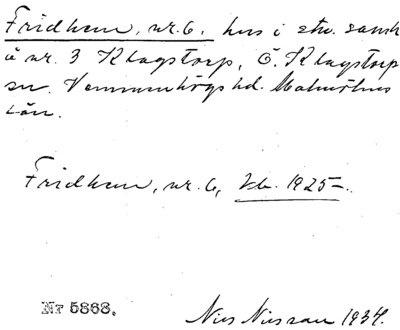 Fridhem, nr. 6, hus i stn. samh
å nr. 3 Klagstorp, Ö. Klagstorp
sn. Vemmenhögs hd. Malmöhus
Län.
Fridhem, nr. 6, Jb. 1925.
Nr 5868.
Nils Nilsson 1934.